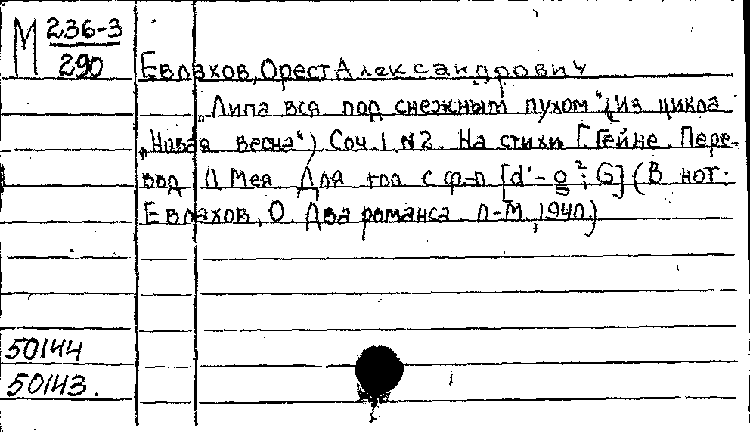 М 236-3
290
Евлахов, Орест Александрович
„Липа вся под снежным пухом" (Из цикла
„Новая весна") Соч. 1 №2. На стихи Г. Гейне. Пере-
вод Л. Мея. Для гол. с ф-п. [d'-g²; G] (В нот.:
Евлахов, О. Два романса. Л-М, 1940.)
50144
50143.